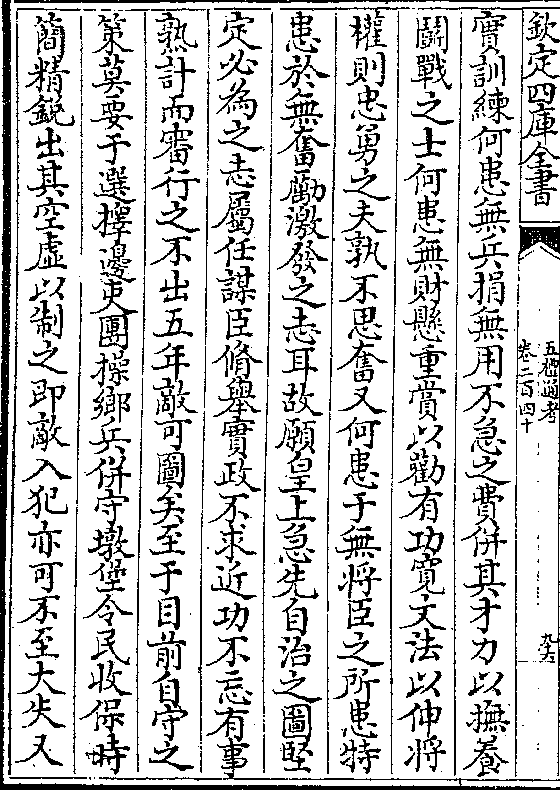 欽定四庫全書
五禮通考
卷二百四十
實訓練何患無兵捐無用不急之費併其才力以撫養
鬭戰之士何患無財懸重賞以勸有功寛文法以伸將
權則忠勇之夫孰不思奮又何患于無將臣之所患特
患於無奮勵激發之志耳故願皇上急先自治之圖堅
定必為之志屬任謀臣脩舉實政不求近功不忘有事
熟計而審行之不出五年敵可圖矣至于目前自守之
策莫要于選擇邊吏團操鄉兵併守墩堡令民收保時
簡精銳出其空虛以制之即敵入犯亦可不至大失又